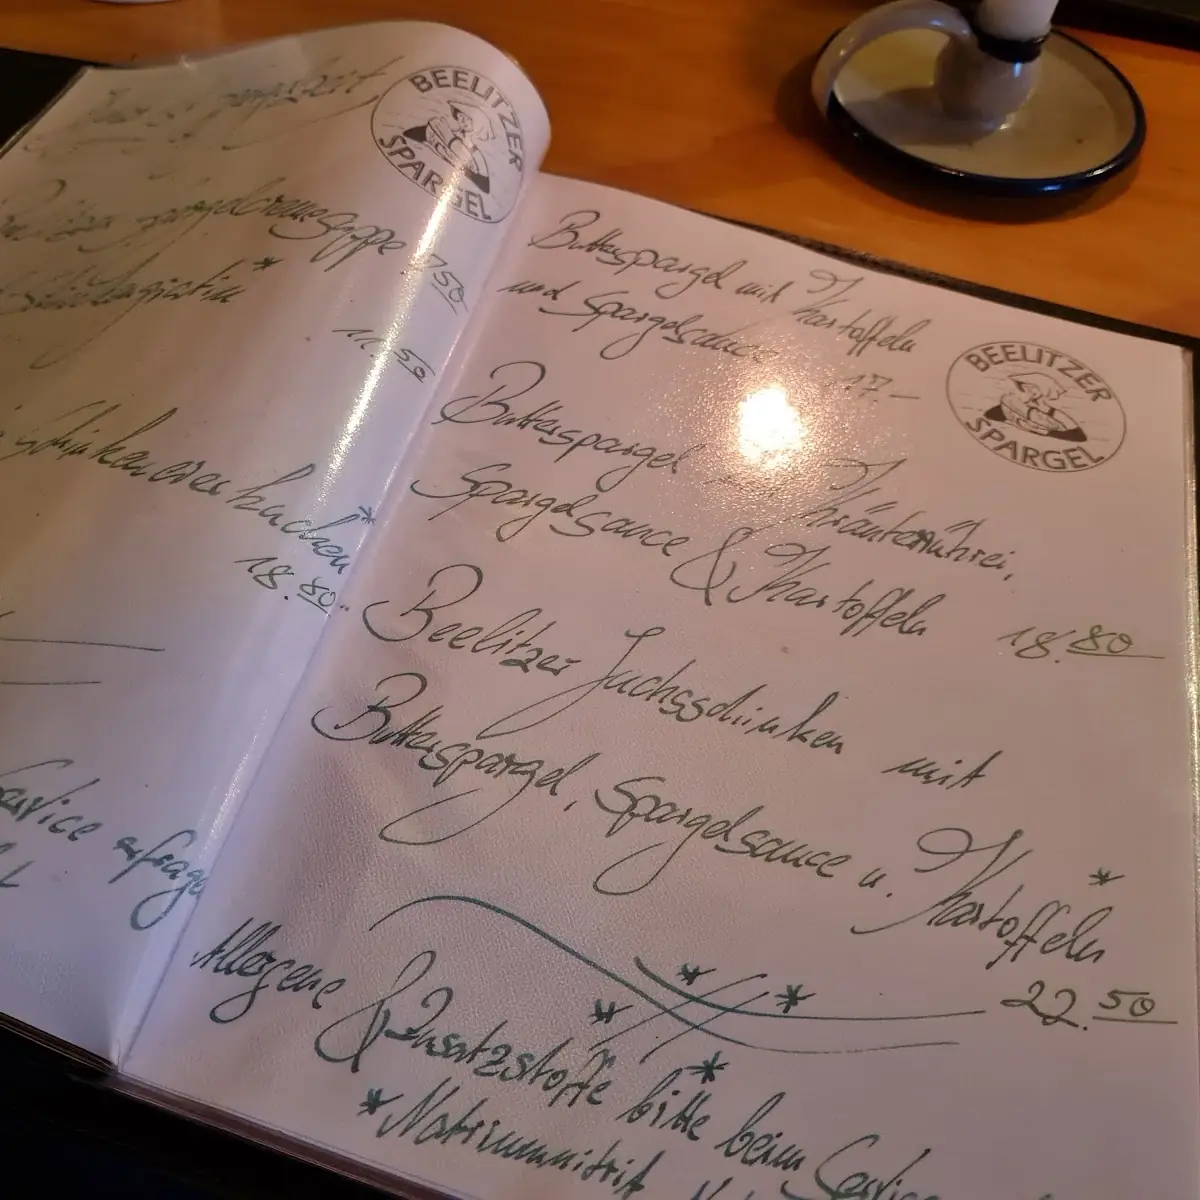 BEELITZER
SPARGEL
Spargelcremesuppe 7.50
*
11.50
Schinkeneierkuchen*
18.80
Service erfragen
Butterspargel mit Kartoffeln
und Spargelsauce 17.-
BEELITZER
SPARGEL
Butterspargel Kräuterrührei,
Spargelsauce & Kartoffeln 18.80
Beelitzer Fuchsschinken mit
Butterspargel, Spargelsauce u. Kartoffeln*
22.50
Allergene & Zusatzstoffe bitte beim Service
*Natriumnitrit